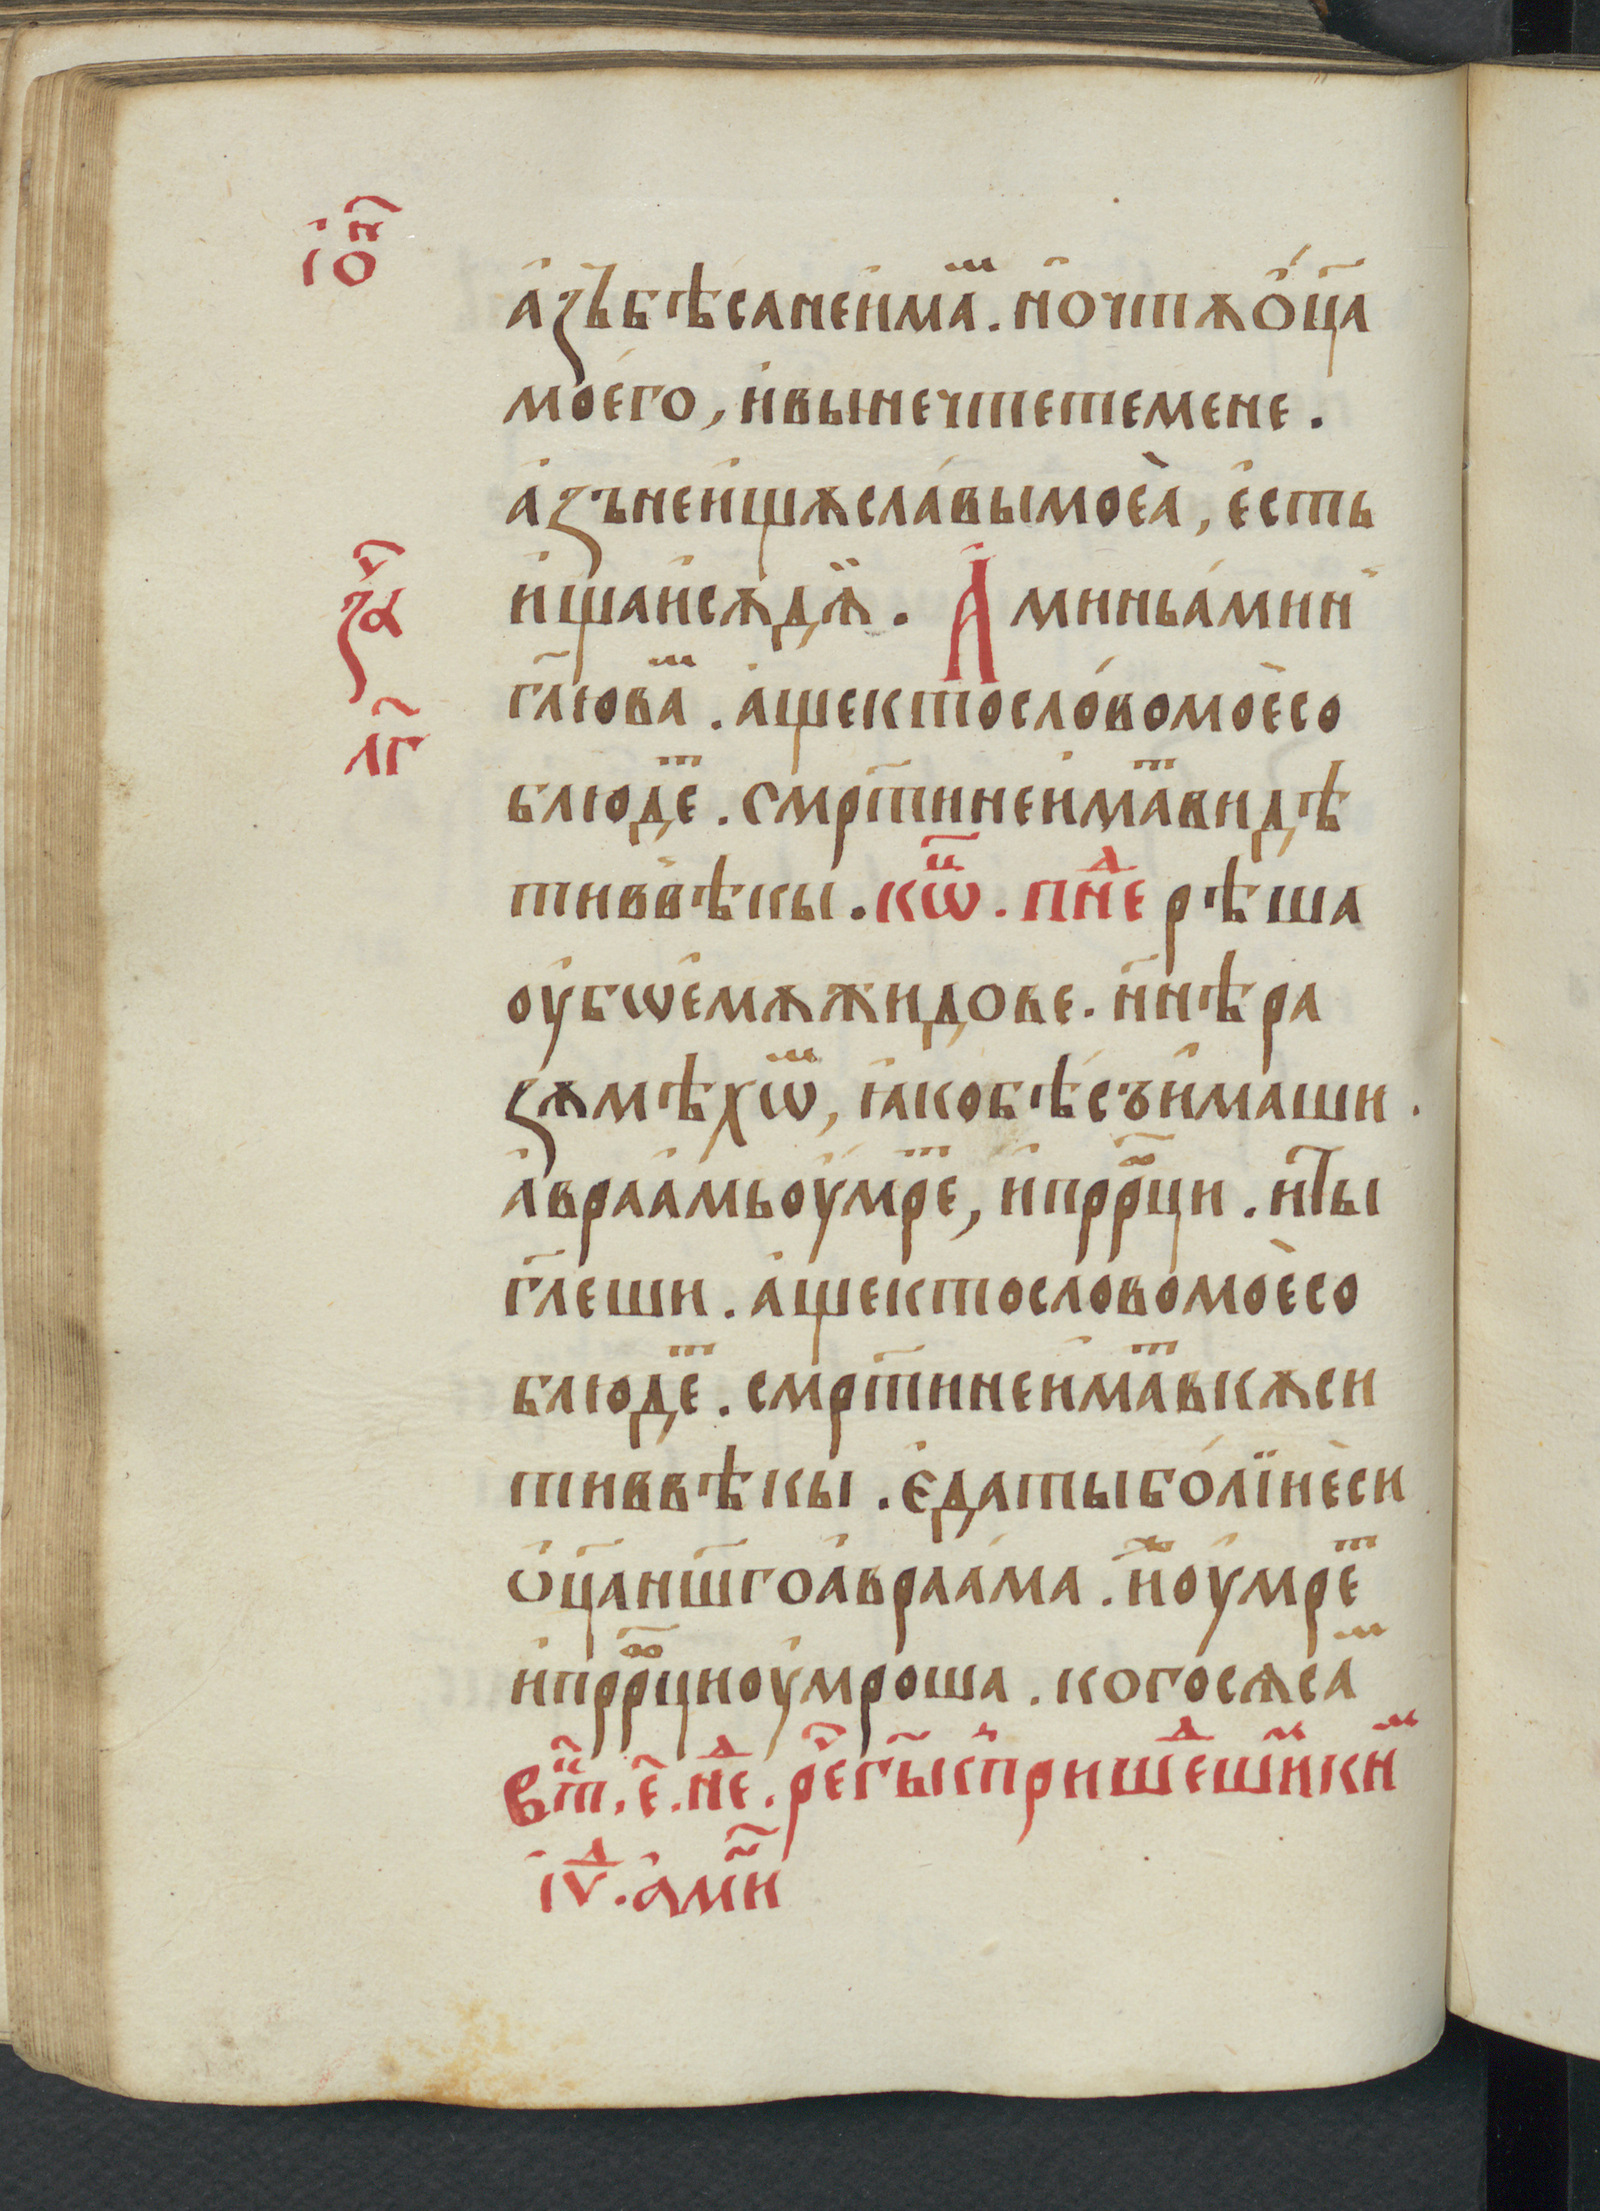 іѡ҃а
а҆зъ бѣса не и҆ма́ⷨ. но чтѫ о҆ц҃а
моего̀, и҆ вы не чтете мене.
а҆зъ не и҆щѫ сла́вы моеа̀, є҆сть
и҆ща и҆ сѫдѧ̈. А҆минь а҆мин
гл҃ю ваⷨ. а҆ще кто сло́во моѐ со
за҃ч
лг҃
блюдеⷮ. смр҃ти не и҆маⷮ видѣ
ти в вѣкы. кѡⷩ҇. пнⷣе рѣша
оу҆бѡ є҆мѫ жидове. нн҃ѣ ра
зѫмѣхѡⷨ, ꙗ҆ко бѣ́съ и҆маши.
а҆враа́мь оу҆мреⷮ, и҆ прⷪ҇рци. и҆ ты
гл҃еши. а҆ще кто слово моѐ со
блюдеⷮ. смр҃ти не и҆маⷮ вкѫси
ти в вѣкы. є҆да ты бо́лїи є҆си
ѻ҆ц҃а нш҃го а҆враа́ма. и҆ⷤ оу҆мреⷮ
и҆ прⷪ҇рци оу҆мроша. кого сѧ саⷨ
вⷩ҇т. е҃. нⷣе. реⷱ҇ гь҃ к пришеⷣшиⷨ к нⷨи
іѵⷣ. а҆миⷩ҇